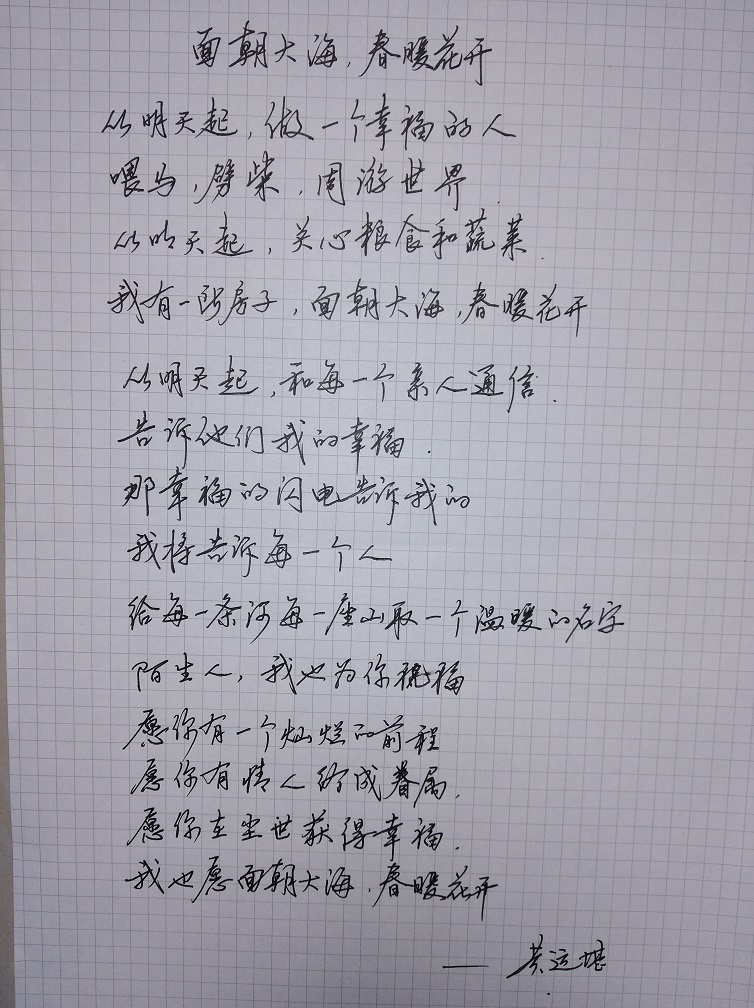 面朝大海,春暖花开
从明天起,做一个幸福的人
喂马,劈柴,周游世界.
从明天起,关心粮食和蔬菜.
我有一所房子,面朝大海,春暖花开
从明天起,和每一个亲人通信.
告诉他们我的幸福.
那幸福的闪电告诉我的
我将告诉每一个人
给每一条河每一座山取一个温暖的名字
陌生人,我也为你祝福
愿你有一个灿烂的前程
愿你有情人终成眷属.
愿你在尘世获得幸福.
我也愿面朝大海,春暖花开
——